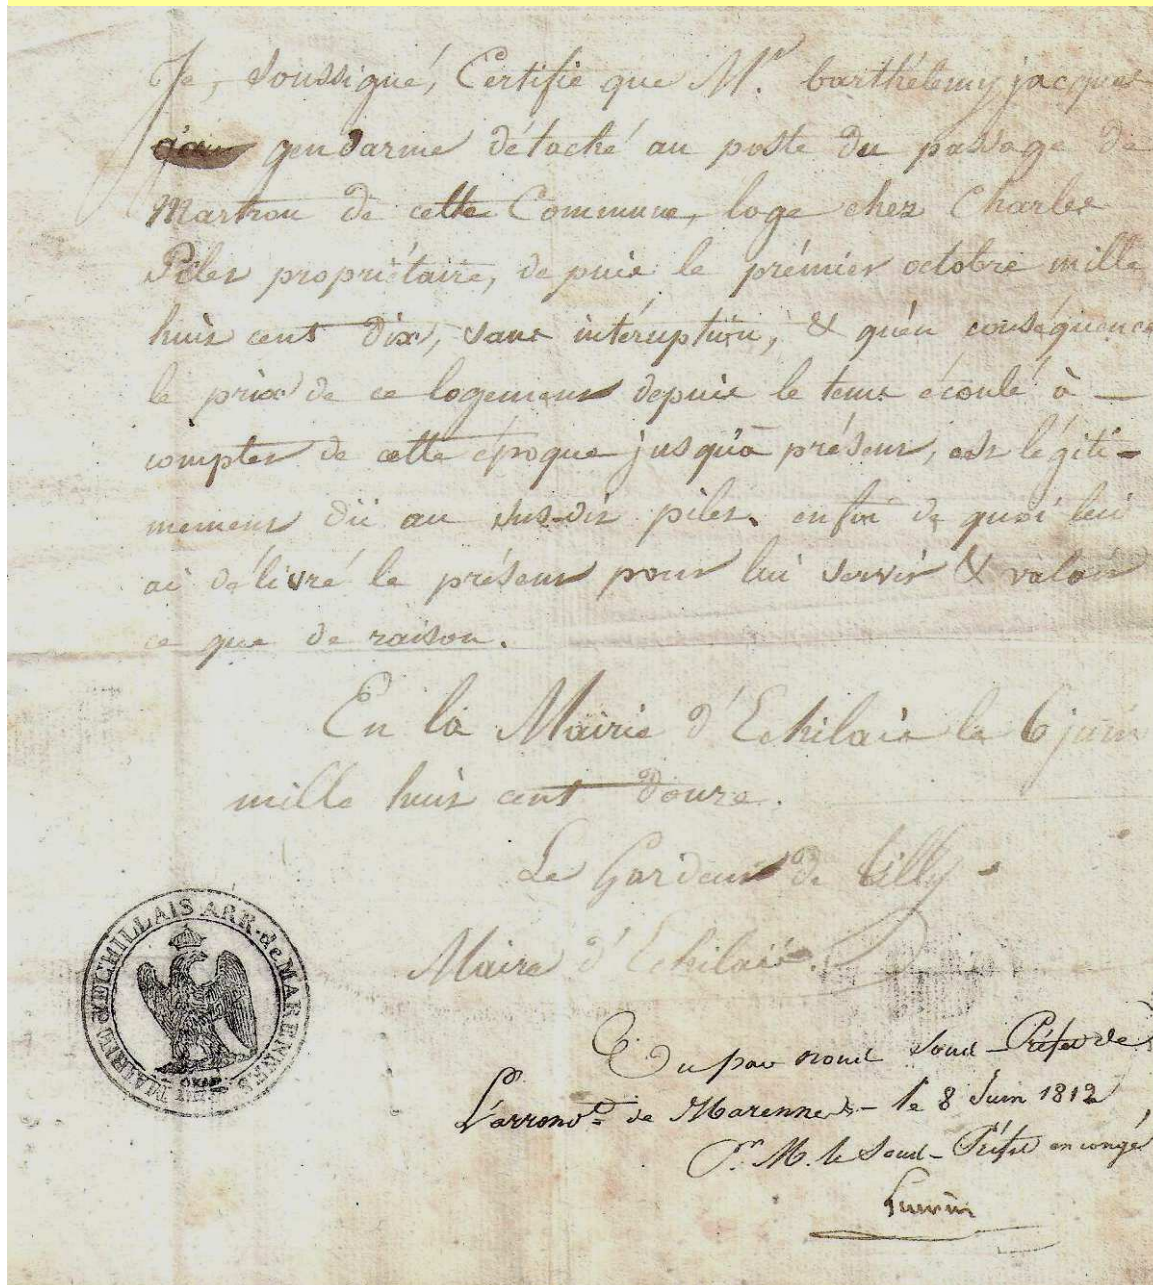 Je, Soussigné, Certifie que Mr. barthélemy jacques
gendarme détaché au poste du passage de
Martrou de cette Commune, loge chez Charles
Piler propriétaire, depuis le prémier octobre mille
huit cent dix, sans intéruption, & qu'en conséquence
le prix de ce logement depuis le tems écoulé à —
compter de cette époque jusqu'à présent, est légiti-
mement dü au sus-dit piler. enfoi de quoi lui
ai délivré le présent pour lui servir & valoir
ce que de raison.
En la Mairie d'Echilais le 6 juin
mille huit cent douze.
Le Gardeur de Tilly
Maire d'Echilais.
MAIRIE D'ECHILLAIS ARR. de MARENNES
Vu par nous Sous-Préfet de
l'arrondt. de Marennes - le 8 Juin 1812
Pr. M. le Sous-Préfet en congé